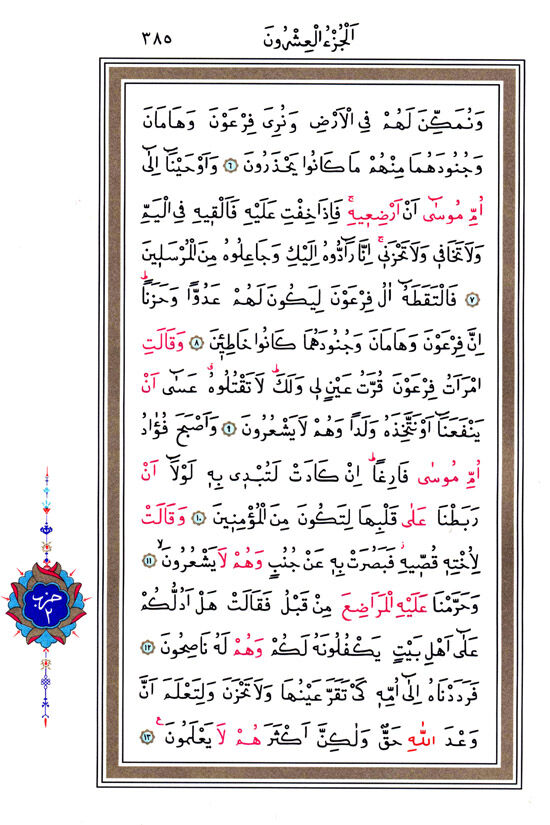 اَلْجُزْءُ الْعِشْرُونَ ٣٨٥
وَنُمَكِّنَ لَهُمْ فِي الْاَرْضِ وَنُرِيَ فِرْعَوْنَ وَهَامَانَ
وَجُنُودَهُمَا مِنْهُمْ مَا كَانُوا يَحْذَرُونَ ٦ وَاَوْحَيْنَٓا اِلٰٓى
اُمِّ مُوسٰٓى اَنْ اَرْضِعِيهِۚ فَاِذَا خِفْتِ عَلَيْهِ فَاَلْقِيهِ فِي الْيَمِّ
وَلَا تَخَافِي وَلَا تَحْزَنِيۚ اِنَّا رَٓادُّوهُ اِلَيْكِ وَجَاعِلُوهُ مِنَ الْمُرْسَلِينَ
٧ فَالْتَقَطَهُٓ اٰلُ فِرْعَوْنَ لِيَكُونَ لَهُمْ عَدُوًّا وَحَزَنًاۜ
اِنَّ فِرْعَوْنَ وَهَامَانَ وَجُنُودَهُمَا كَانُوا خَاطِـِٔينَ ٨ وَقَالَتِ
امْرَاَتُ فِرْعَوْنَ قُرَّتُ عَيْنٍ لِي وَلَكَۜ لَا تَقْتُلُوهُۗ عَسٰٓى اَنْ
يَنْفَعَنَٓا اَوْ نَتَّخِذَهُ وَلَدًا وَهُمْ لَا يَشْعُرُونَ ٩ وَاَصْبَحَ فُؤٰادُ
اُمِّ مُوسٰى فَارِغًاۜ اِنْ كَادَتْ لَتُبْدِي بِهِ لَوْلَٓا اَنْ
رَبَطْنَا عَلٰى قَلْبِهَا لِتَكُونَ مِنَ الْمُؤْمِنِينَ ١٠ وَقَالَتْ
لِاُخْتِهِ قُصِّيهِۘ فَبَصُرَتْ بِهِ عَنْ جُنُبٍ وَهُمْ لَا يَشْعُرُونَۙ ١١
وَحَرَّمْنَا عَلَيْهِ الْمَرَاضِعَ مِنْ قَبْلُ فَقَالَتْ هَلْ اَدُلُّكُمْ
عَلٰٓى اَهْلِ بَيْتٍ يَكْفُلُونَهُ لَكُمْ وَهُمْ لَهُ نَاصِحُونَ ١٢
فَرَدَدْنَاهُ اِلٰٓى اُمِّهِ كَيْ تَقَرَّ عَيْنُهَا وَلَا تَحْزَنَ وَلِتَعْلَمَ اَنَّ
وَعْدَ اللّٰهِ حَقٌّ وَلٰكِنَّ اَكْثَرَهُمْ لَا يَعْلَمُونَ۟ ١٣
حزب
٢